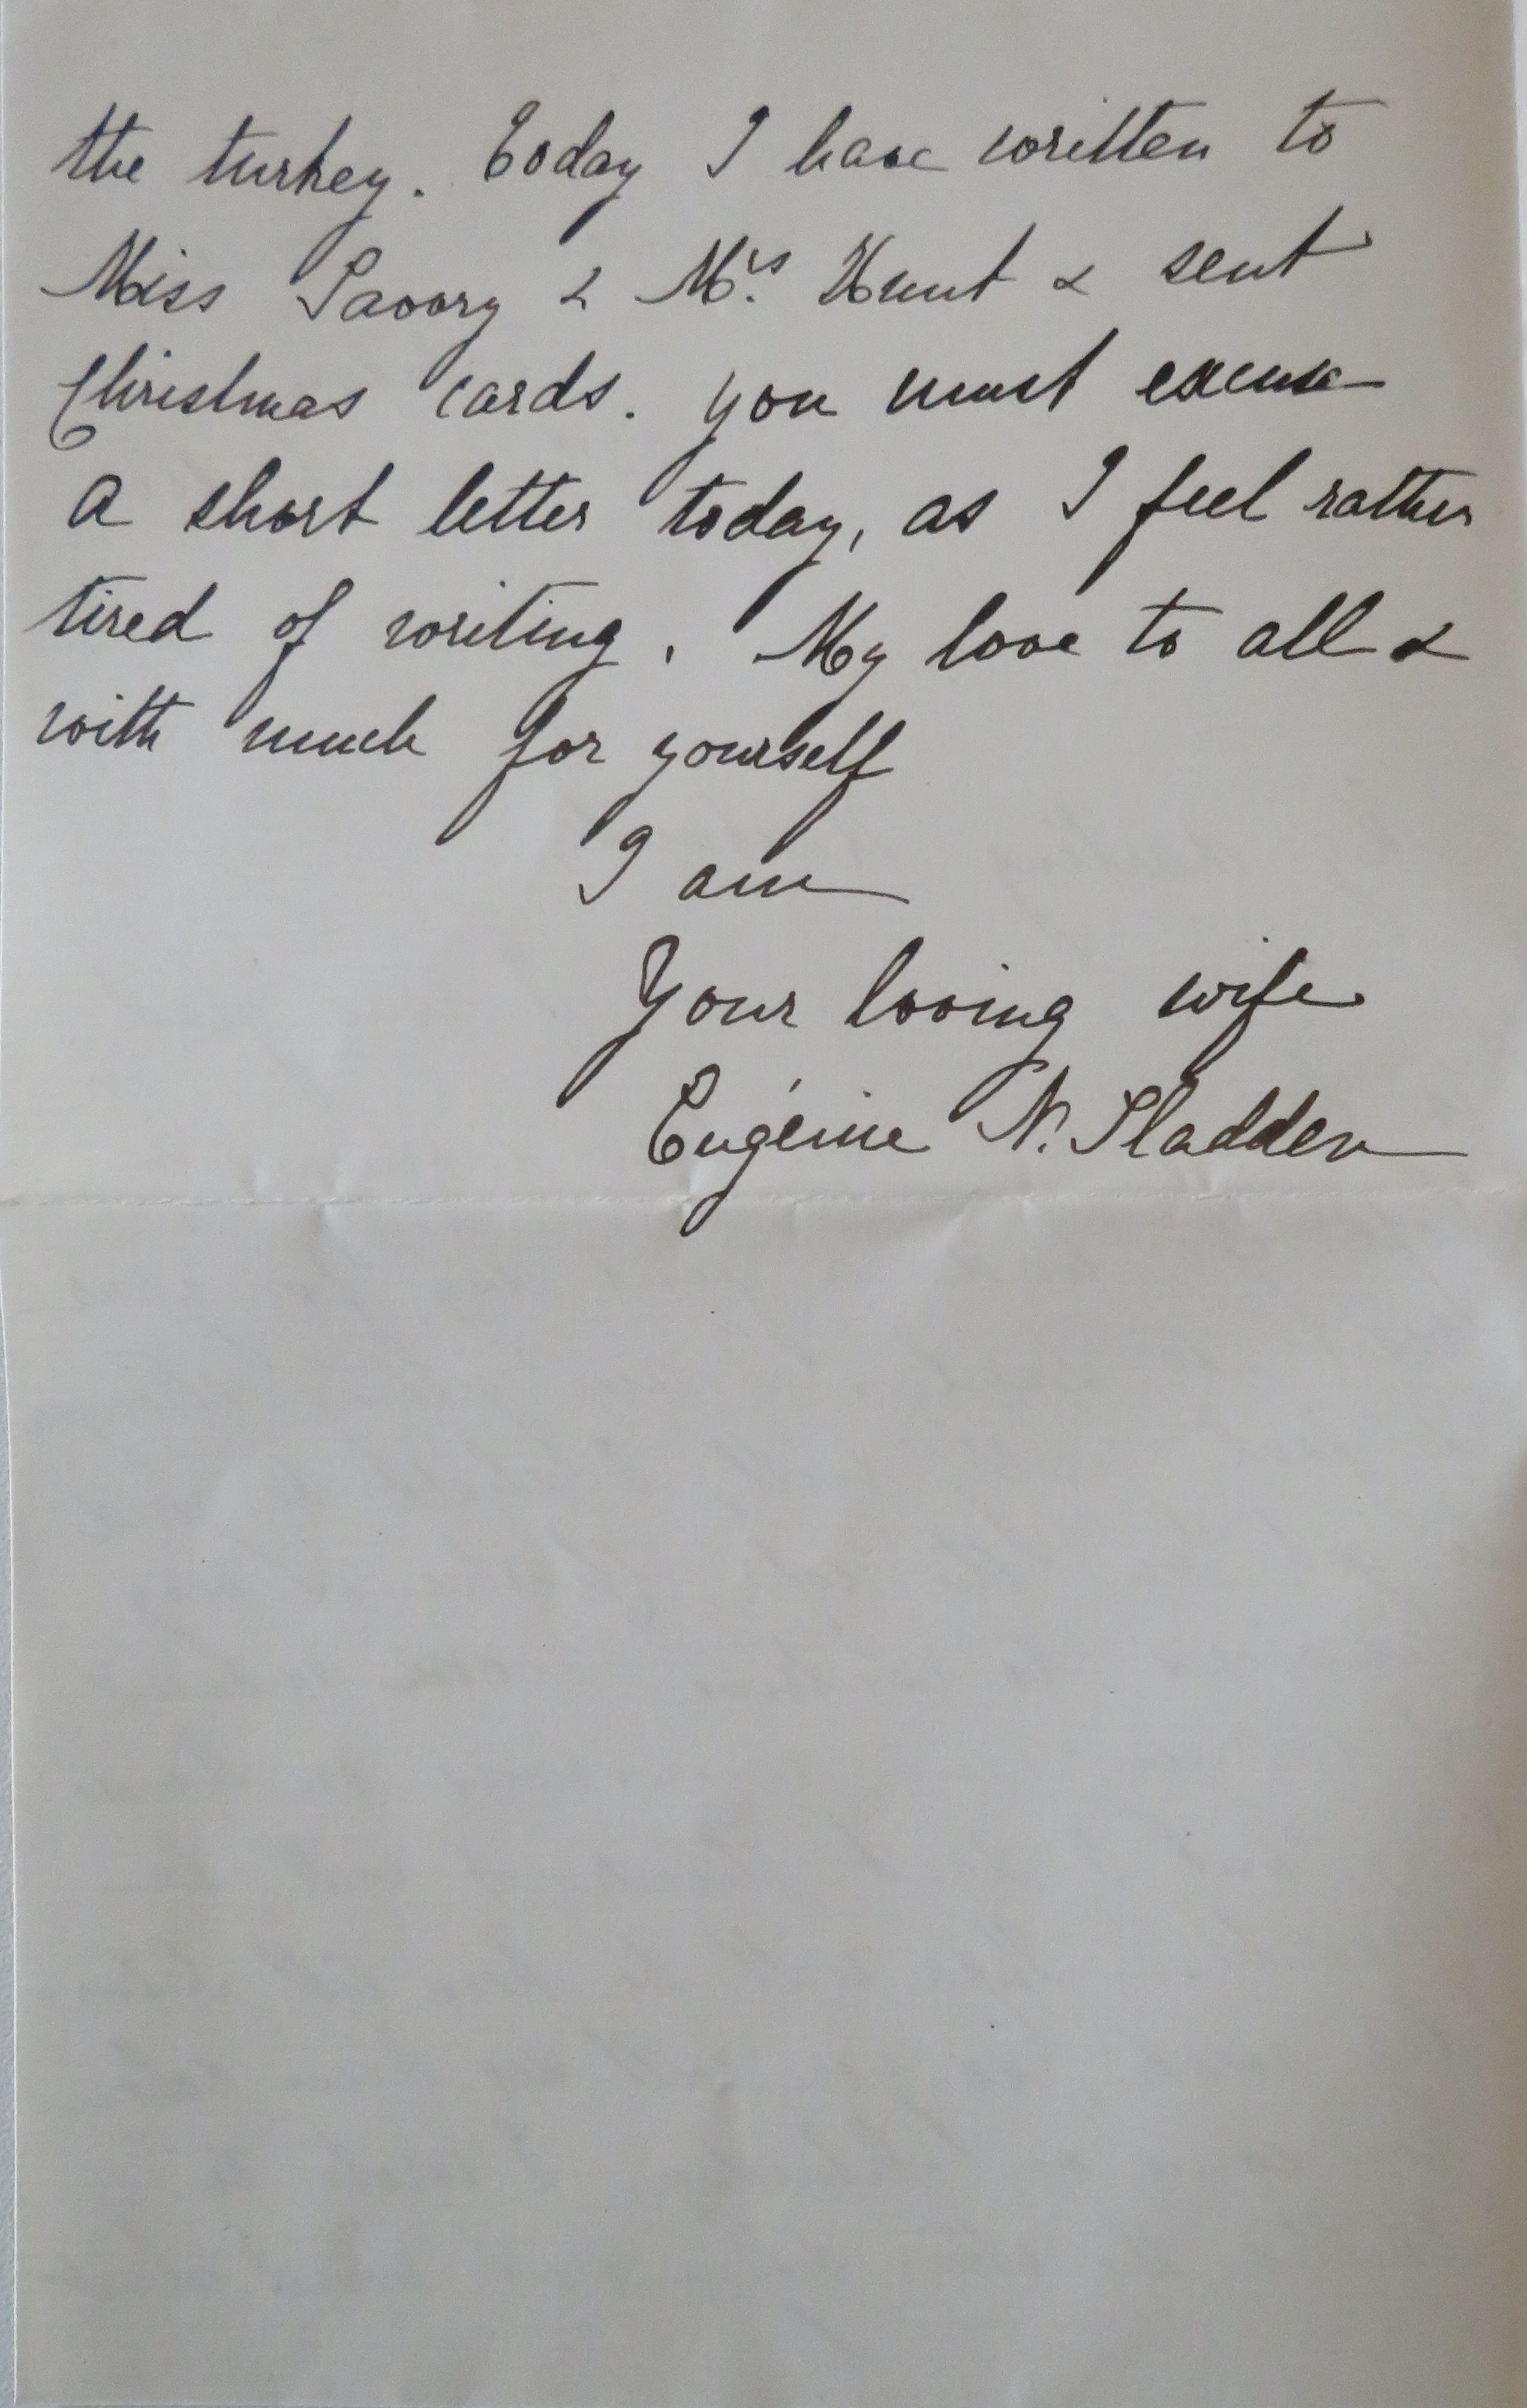 the turkey. Today I have written to
Miss Savory & Mrs. Hunt & sent
Christmas cards. you must excuse
a short letter today, as I feel rather
tired of writing. My love to all &
with much for yourself
I am
Your loving wife
Eugénie N. Sladden